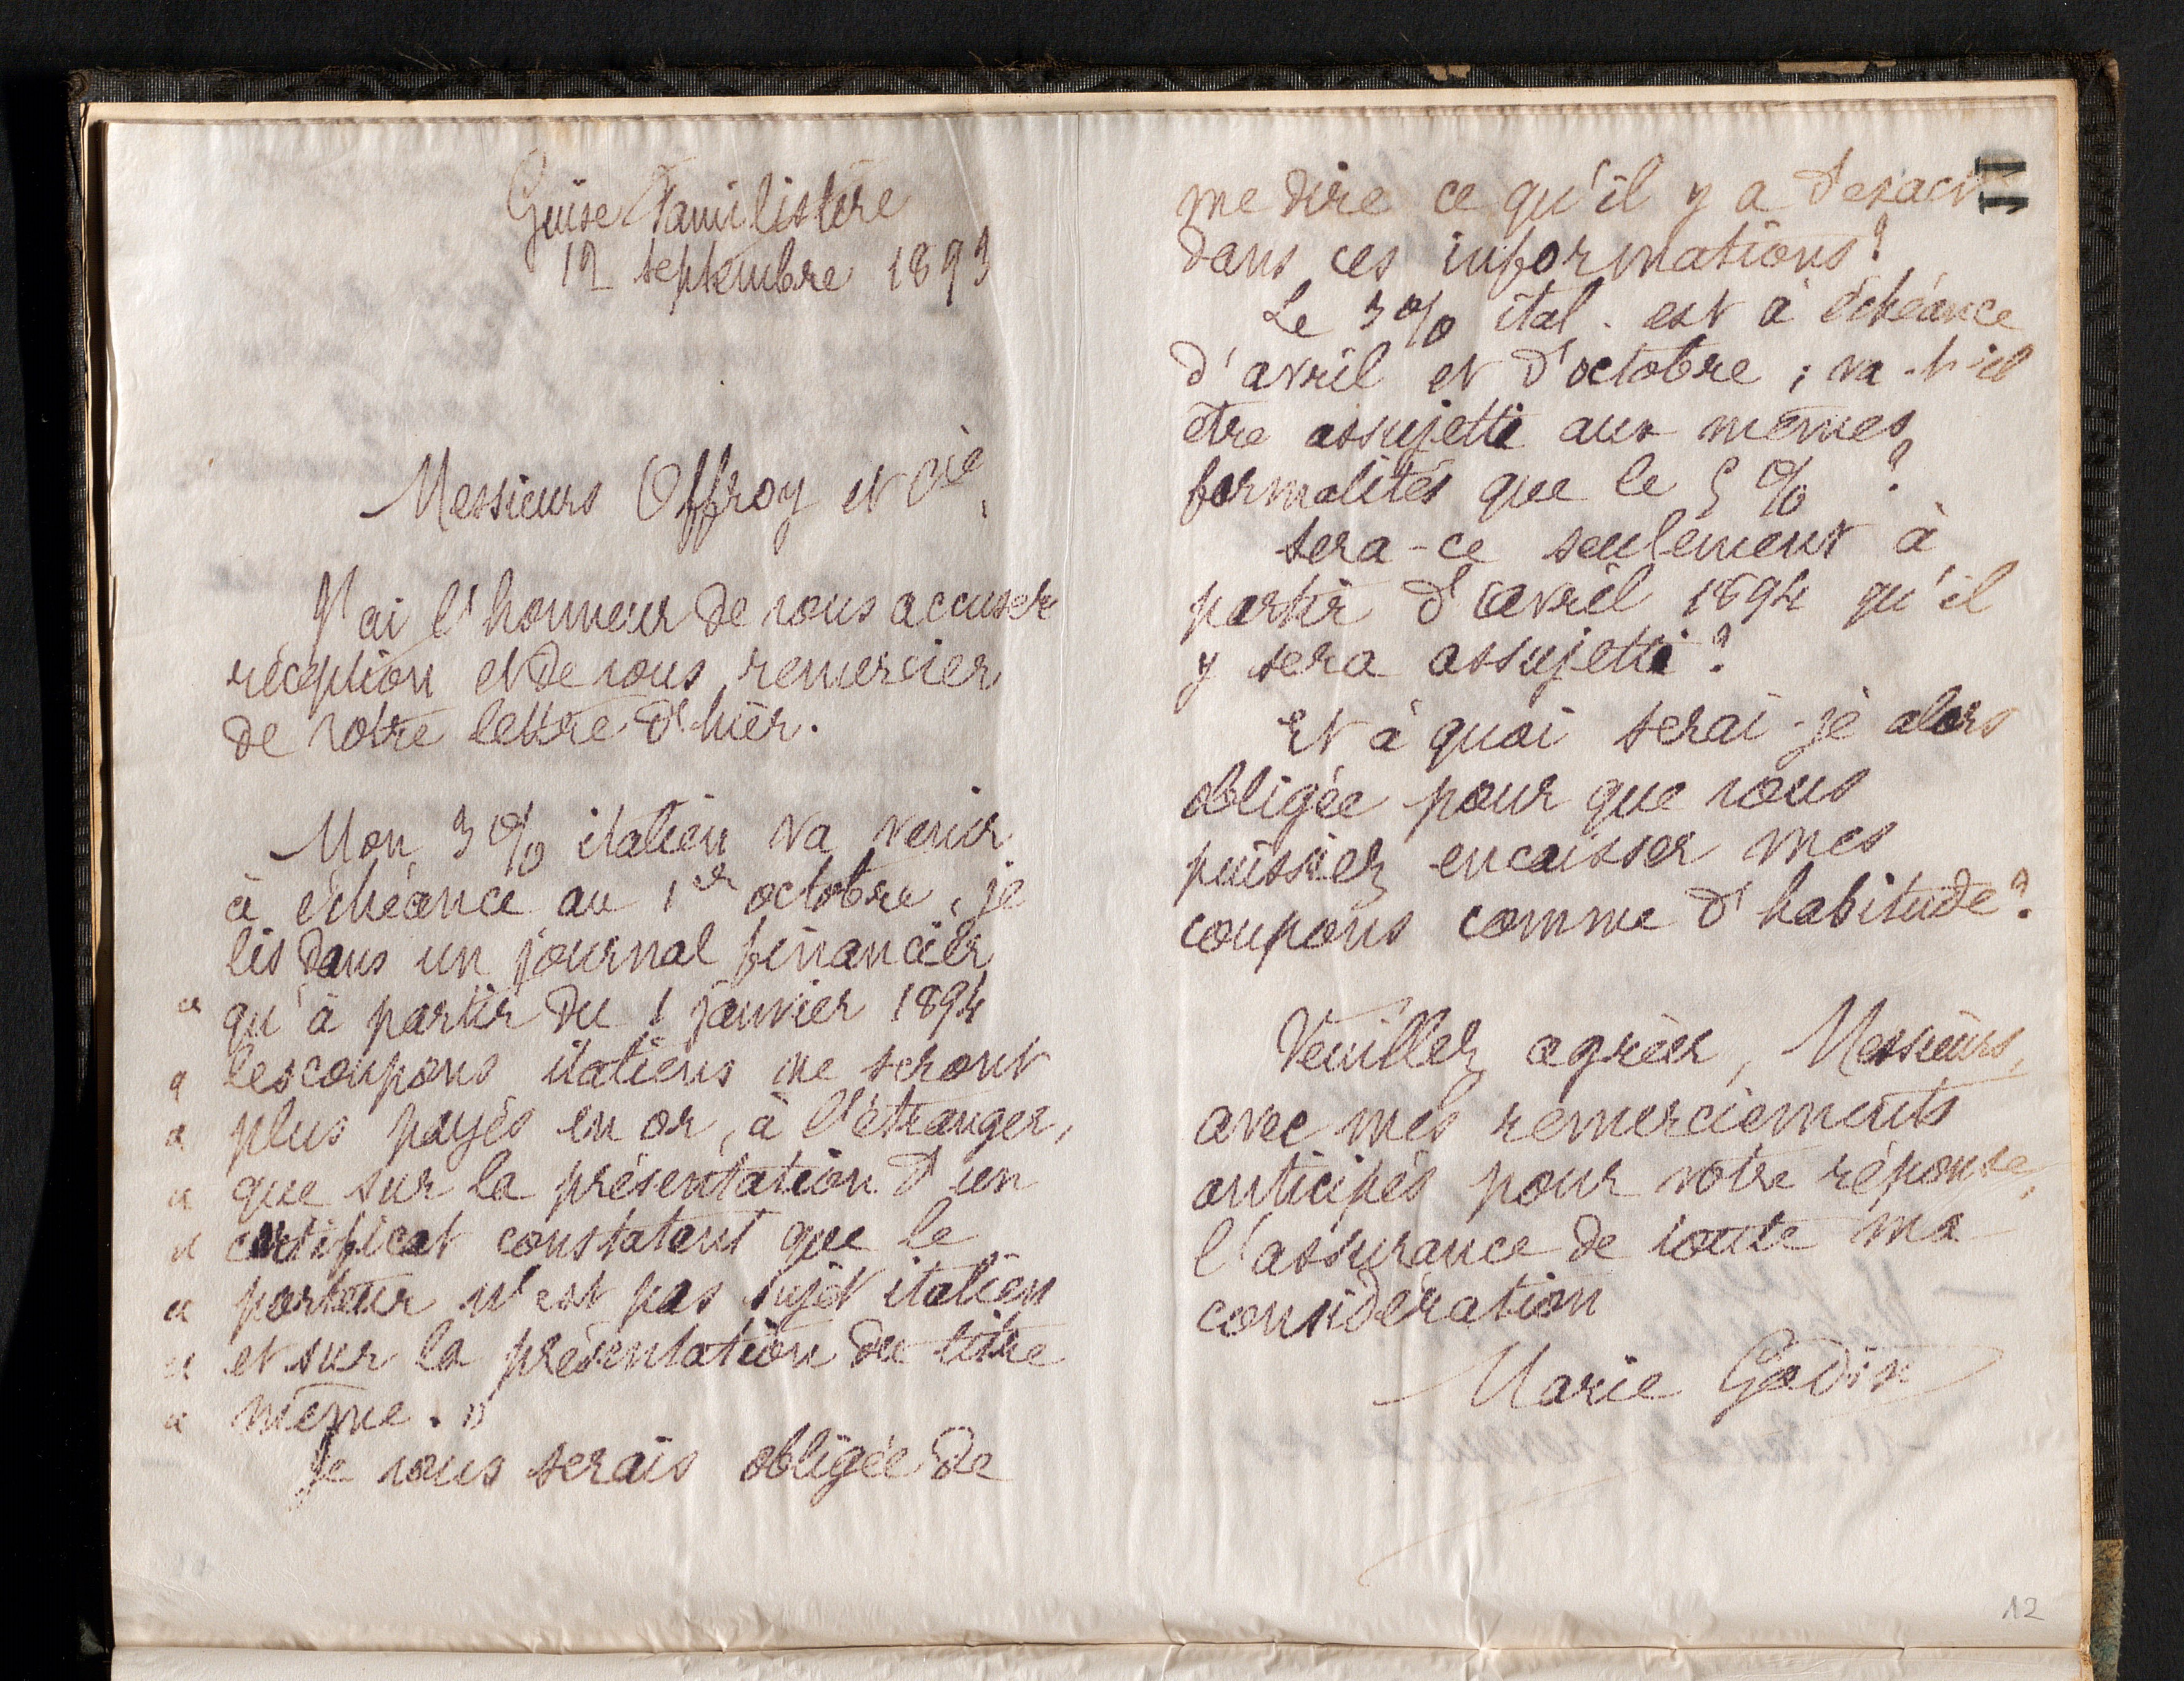 Guise Familistère
12 septembre 1893
Messieurs Offroy et Cie,
J'ai l'honneur de vous accuser
réception et de vous remercier
de votre lettre d'hier.
Mon 3% italien va venir
à échéance au 1er octobre, je
lis dans un journal financier
« qu'à partir du 1 janvier 1894
« les coupons italiens ne seront
« plus payés en or, à l'étranger,
« que sur la présentation d'un
« certificat constatant que le
« porteur n'est pas sujet italien
« et sur la présentation du titre
« même. »
Je vous serais obligée de
11
me dire ce qu'il y a d'exact
dans ces informations?
Le 3% ital. est à échéance
d'avril et d'octobre ; va-t-il
être assujetti aux mêmes
formalités que le 5% ?
sera-ce seulement à
partir d'avril 1894 qu'il
y sera assujetti?
Et à quoi serai-je alors
obligée pour que vous
puissiez encaisser mes
coupons comme d'habitude?
Veuillez agréer, Messieurs,
avec mes remerciements
anticipés pour votre réponse,
l'assurance de toute ma
considération
Marie Godin
12